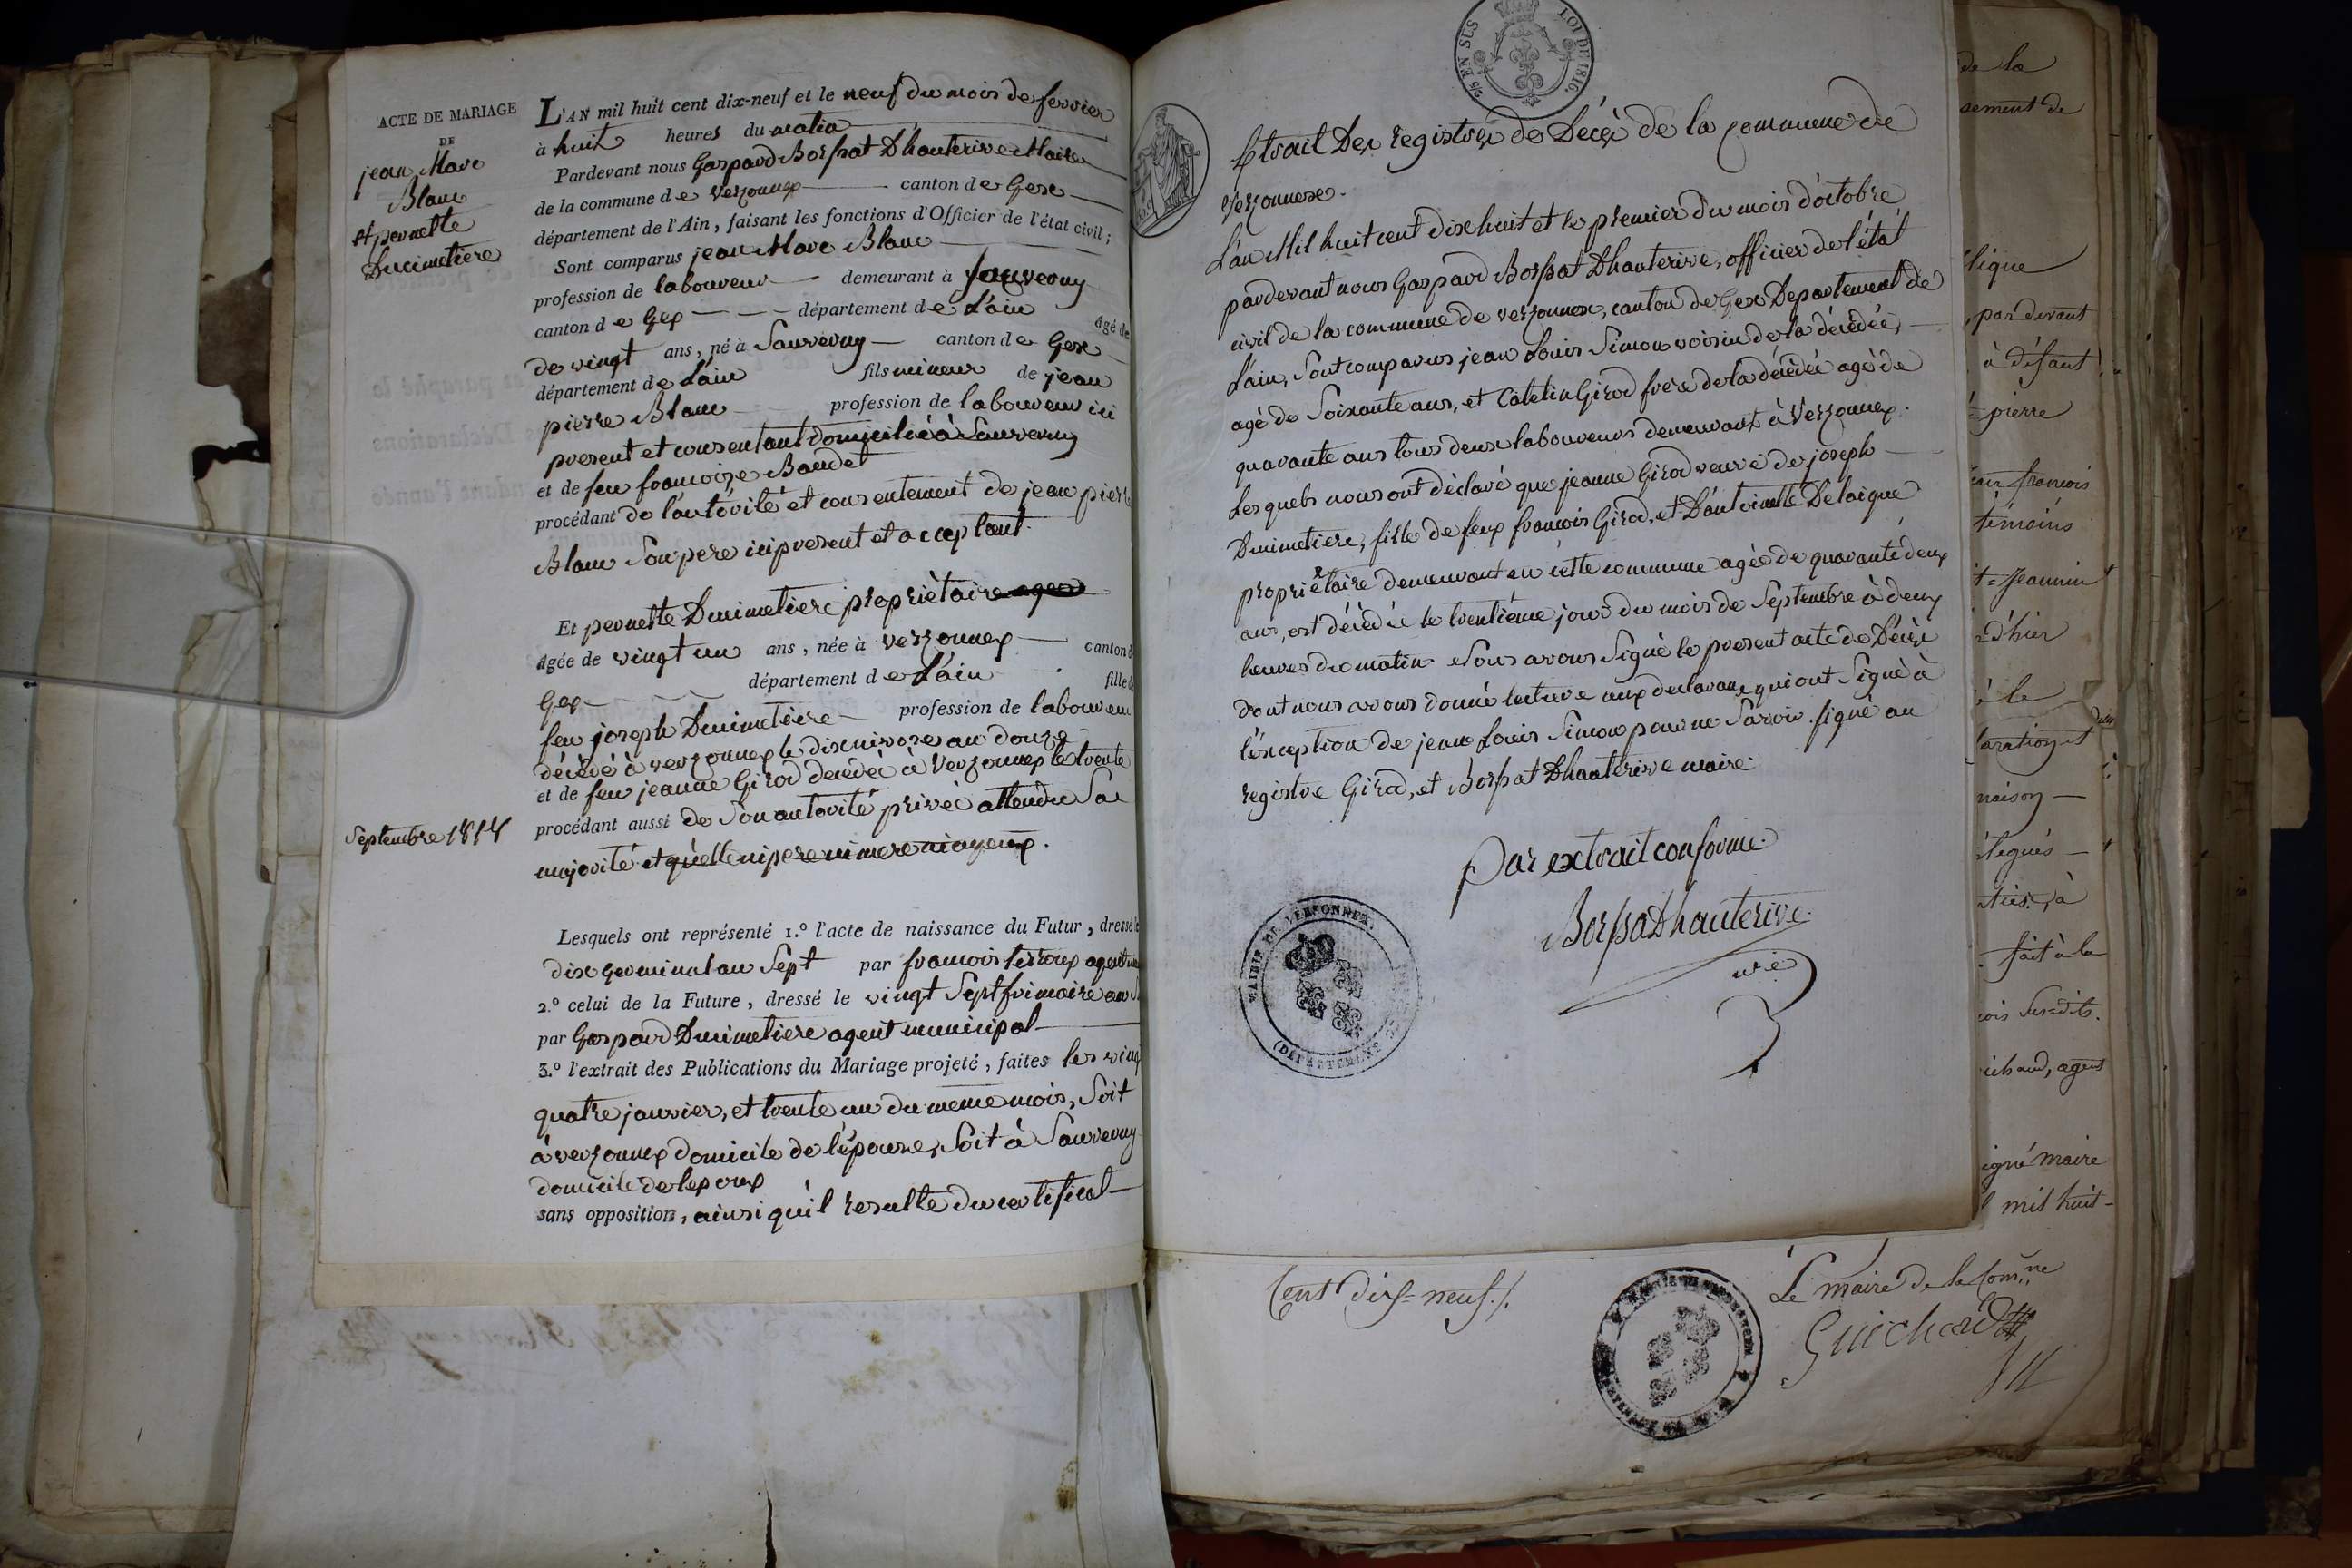 ACTE DE MARIAGE
DE
jean Marc
Blanc
et pernette
Ducimetiere
L'AN mil huit cent dix-neuf et le neuf du mois de fevrier
à huit heures du matin
Pardevant nous Gaspard Borssat Dhauterive Maire
de la commune de Verzonnex canton de Gex
département de l'Ain, faisant les fonctions d'Officier de l'état civil;
Sont comparus jean Marc Blanc
profession de laboureur demeurant à Sauverny
canton de Gex département de L'ain âgé de
de vingt ans, né à Sauverny canton de Gex
département de L'ain fils mineur de jean
pierre Blanc profession de laboureur ici
present et consentant domicilié à Sauverny
et de feu francoize Baudet
procédant de l'autorité et consentement de jean pierre
Blanc Son pere ici present et acceptant.
Et pernette Ducimetiere propriètaire agee
âgée de vingt un ans, née à verzonnex canton de
Gex département de L'ain fille de
feu joseph Ducimetiere profession de laboureur
décédé à verzonnex le dix nivose an douze
et de feu jeanne Girod decedée à Verzonnex le trente
Septembre 1818
procédant aussi de Son autorité privée attendu Sa
majorité et qu'elle ni pere ni mere ni ayeux.
Lesquels ont représenté 1.º l'acte de naissance du Futur, dressé le
dix germinal an Sept par francois agent
2.º celui de la Future, dressé le vingt Sept frimaire an
par Gaspard Ducimetiere agent municipal
3.º l'extrait des Publications du Mariage projeté, faites les vingt
quatre janvier, et trente un du meme mois, Soit
à verzonnex domicile de l'épouse, Soit à Sauverny
domicile de lepoux
sans opposition, ainsi qu'il resulte du certificat
EN SUS LOI DE 1816.
Extrait Des registres de Décès de la commune de
Verzonnex.
L'an Mil huit cent dix huit et le premier du mois d'octobre
pardevant nous Gaspard Borssat Dhauterive, officier de l'état
civil de la commune de verzonnex, canton de Gex Departement de
L'ain, Sont comparus jean Louis Simon voisin de la décédée,
agé de Soixante ans, et Catelin Girod frere de la décédée agé de
quarante ans tous deux laboureurs demeurant à Verzonnex.
Lesquels nous ont déclaré que jeanne Girod veuve de joseph
Ducimetiere, fille de feux francois Girod, et D'antoinette Delaigue
propriétaire demeurant en cette commune agée de quarante deux
ans, est décédée le trentième jour du mois de Septembre à deux
heures du matin Nous avons Signé le present acte de Décès
dont nous avons donné lecture aux declarans qui ont Signé à
l'exception de jean Louis Simon pour ne Savoir. signé au
registre Girod, et Borssat Dhauterive maire.
Par extrait conforme.
Borssat Dhauterive
MAIRIE DE VERSONNEX,
(DÉPARTEMENT
de la
sement de
par devant
à défaut
pierre
francois
témoins
Jeannin
d'hier
à le
fait à la
susdits.
agent
igné maire
mil huit-
Cent dix=neuf./.
Le maire de la Com.ne
Guichard